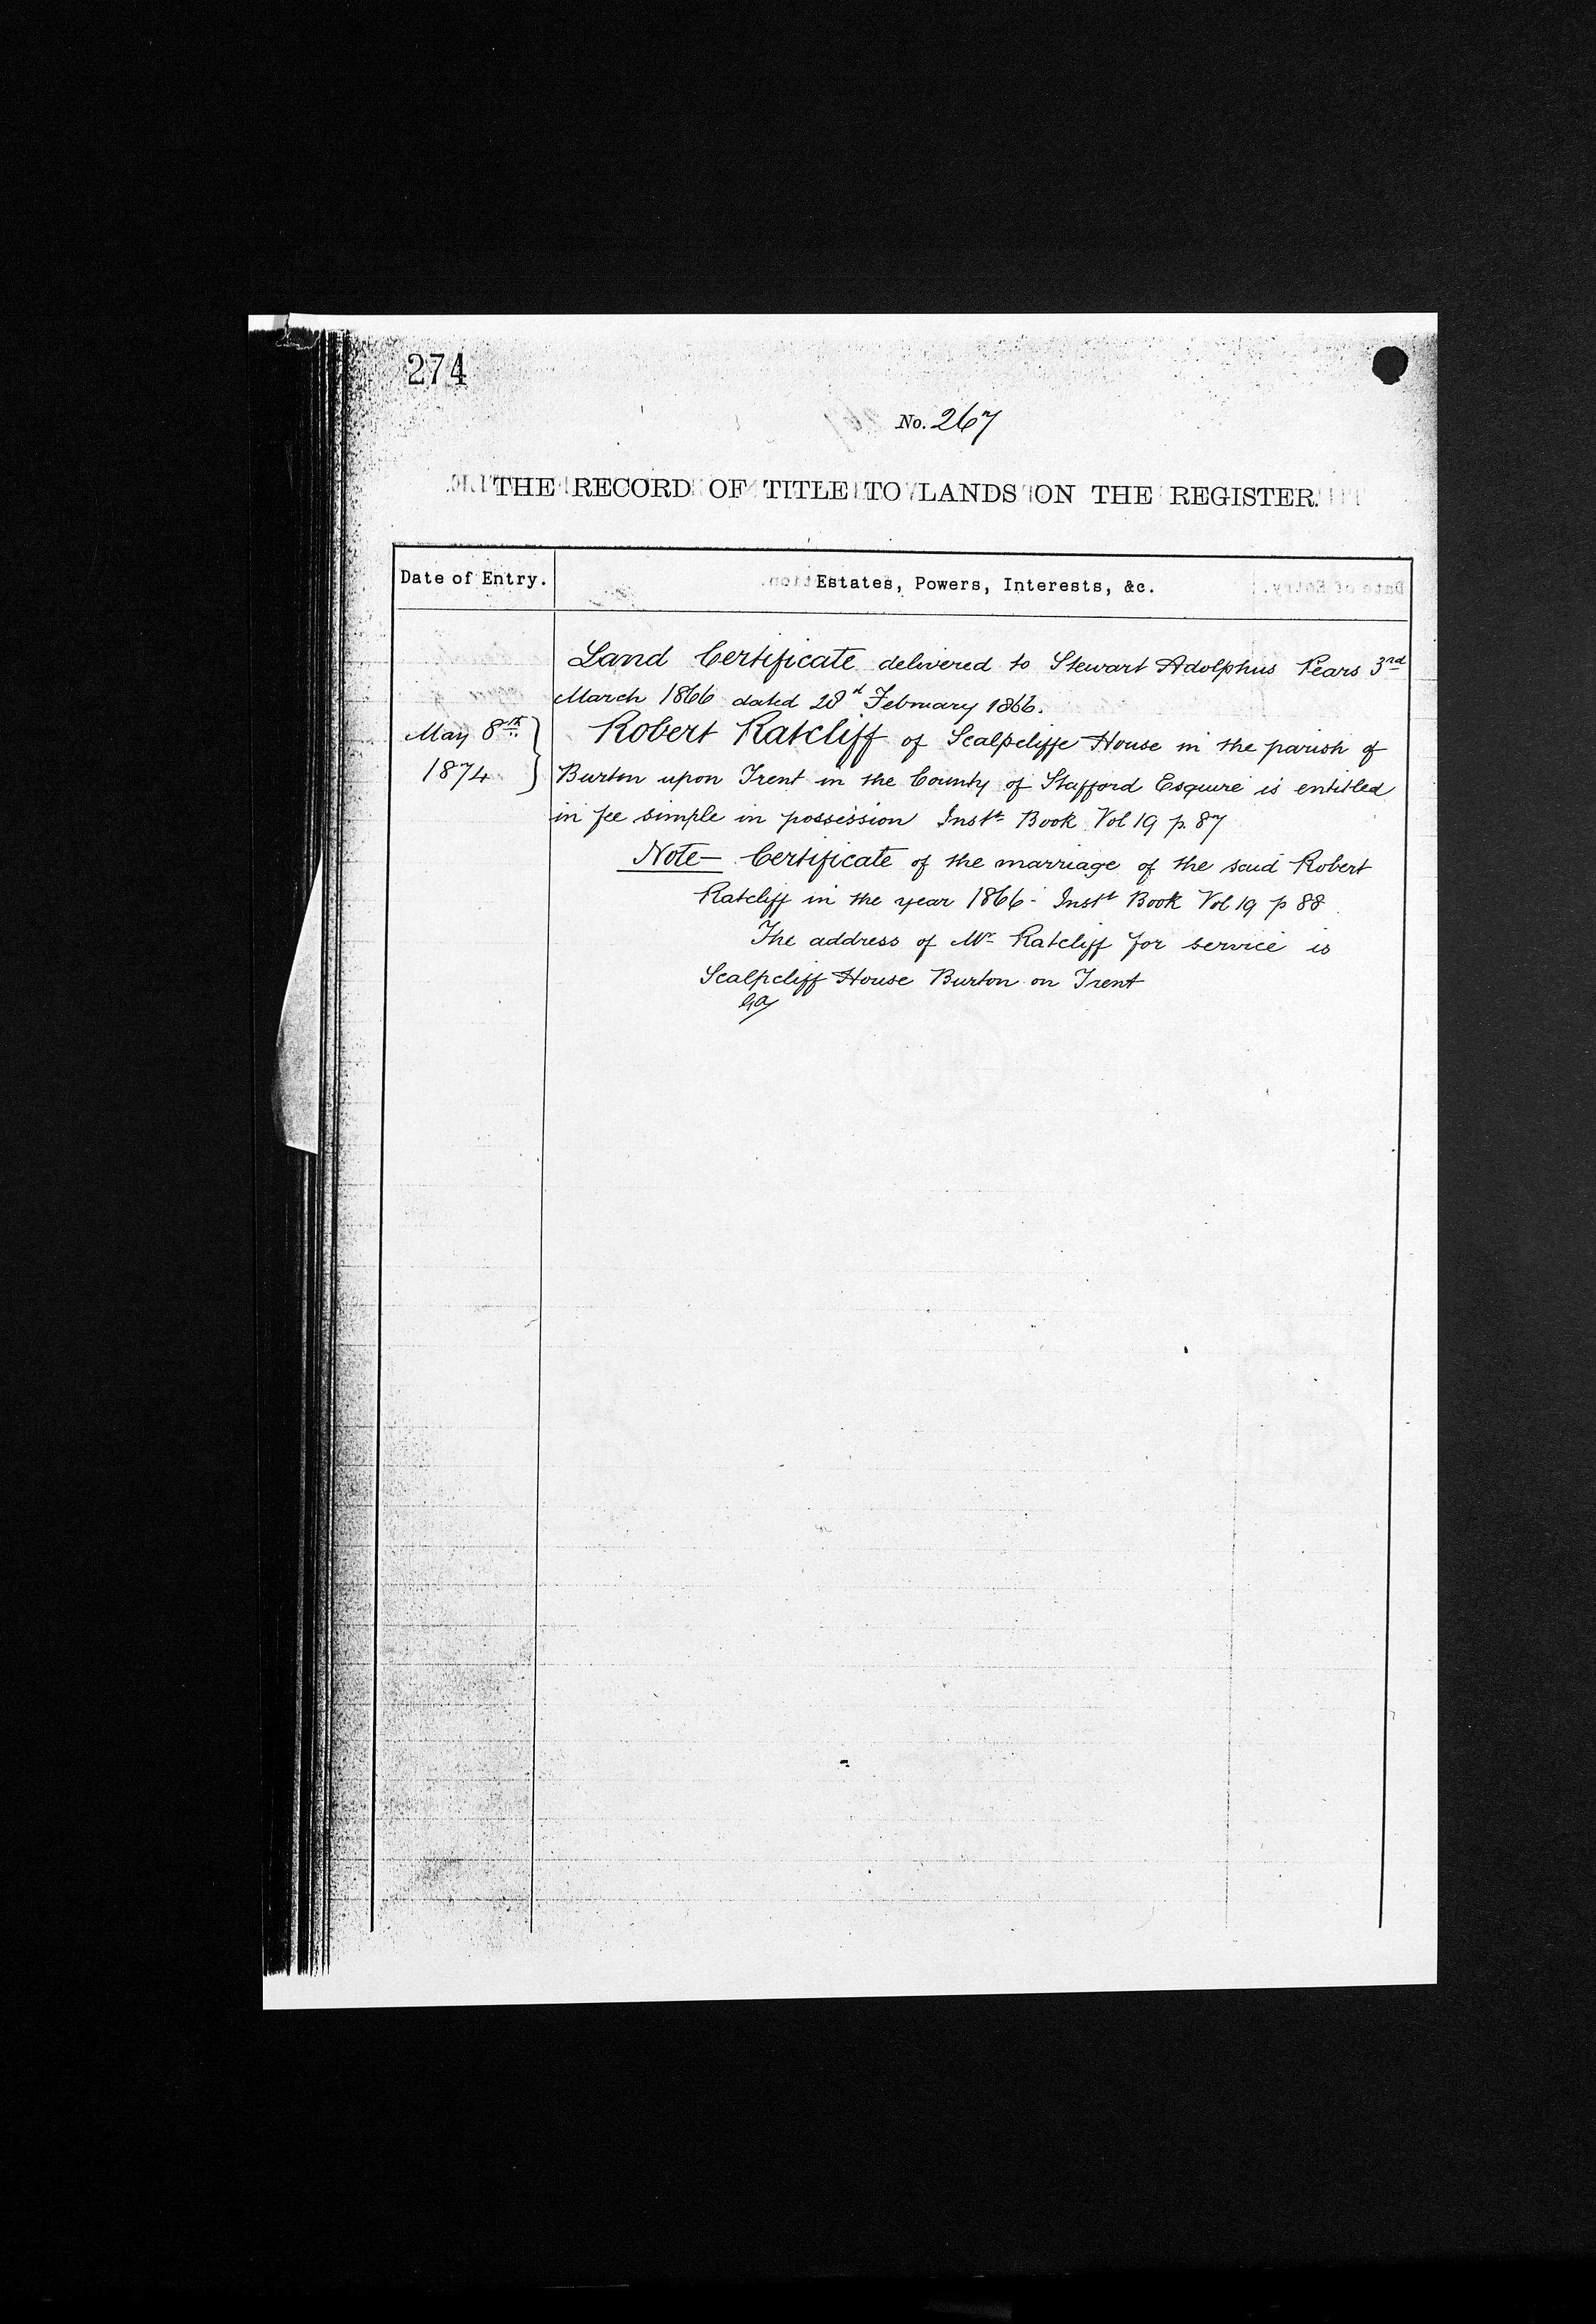 274
No. 267
THE RECORD OF TITLE TO LANDS ON THE REGISTER.
Date of Entry.
Estates, Powers, Interests, &c.
Land Certificate delivered to Stewart Adolphus Pears 3rd
March 1866 dated 28th February 1866.
May 8th
1874
Robert Ratcliff of Scalpcliffe House in the parish of
Burton upon Trent in the County of Stafford Esquire is entitled
in fee simple in possession Instt Book Vol 19 p. 87
Note — Certificate of the marriage of the said Robert
Ratcliff in the year 1866 - Instt Book Vol 19 p 88
The address of Mr Ratcliff for service is
Scalpcliff House Burton on Trent